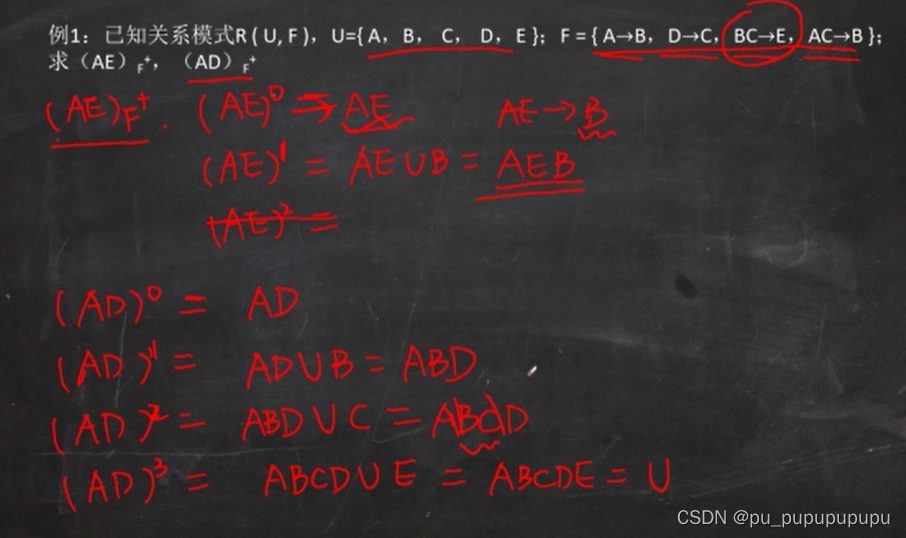 例1：已知关系模式R ( U, F )，U={ A，B， C，D，E }；F = { A→B，D→C，BC→E，AC→B }；
求（AE）F⁺，（AD）F⁺
(AE)F⁺ . (AE)⁰ → AE AE→B
(AE)¹ = AE∪B = AEB
(AE)² =
(AD)⁰ = AD
(AD)¹ = AD∪B = ABD
(AD)² = ABD∪C = ABCD
(AD)³ = ABCD∪E = ABCDE = U
CSDN @pu_pupupupupu